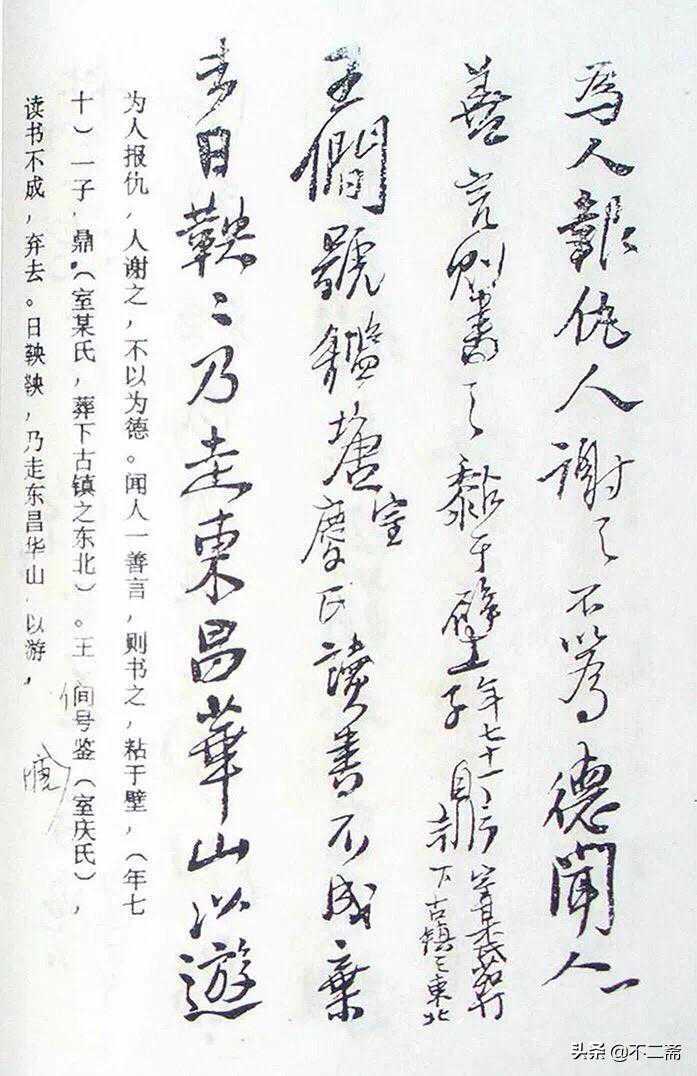 爲人報仇人謝之不以爲德聞人一
善言則書之黏于壁年七十一子鼎室某氏葬
下古鎮之東北
王僩號鑑室慶氏讀書不成棄
去日鞅〻乃走東昌華山以遊
为人报仇，人谢之，不以为德。闻人一善言，则书之，粘于壁，（年七
十）一子，鼎。（室某氏，葬下古镇之东北）。王僩号鉴（室庆氏），
读书不成，弃去。日鞅鞅，乃走东昌华山以游，
头条@不二斋